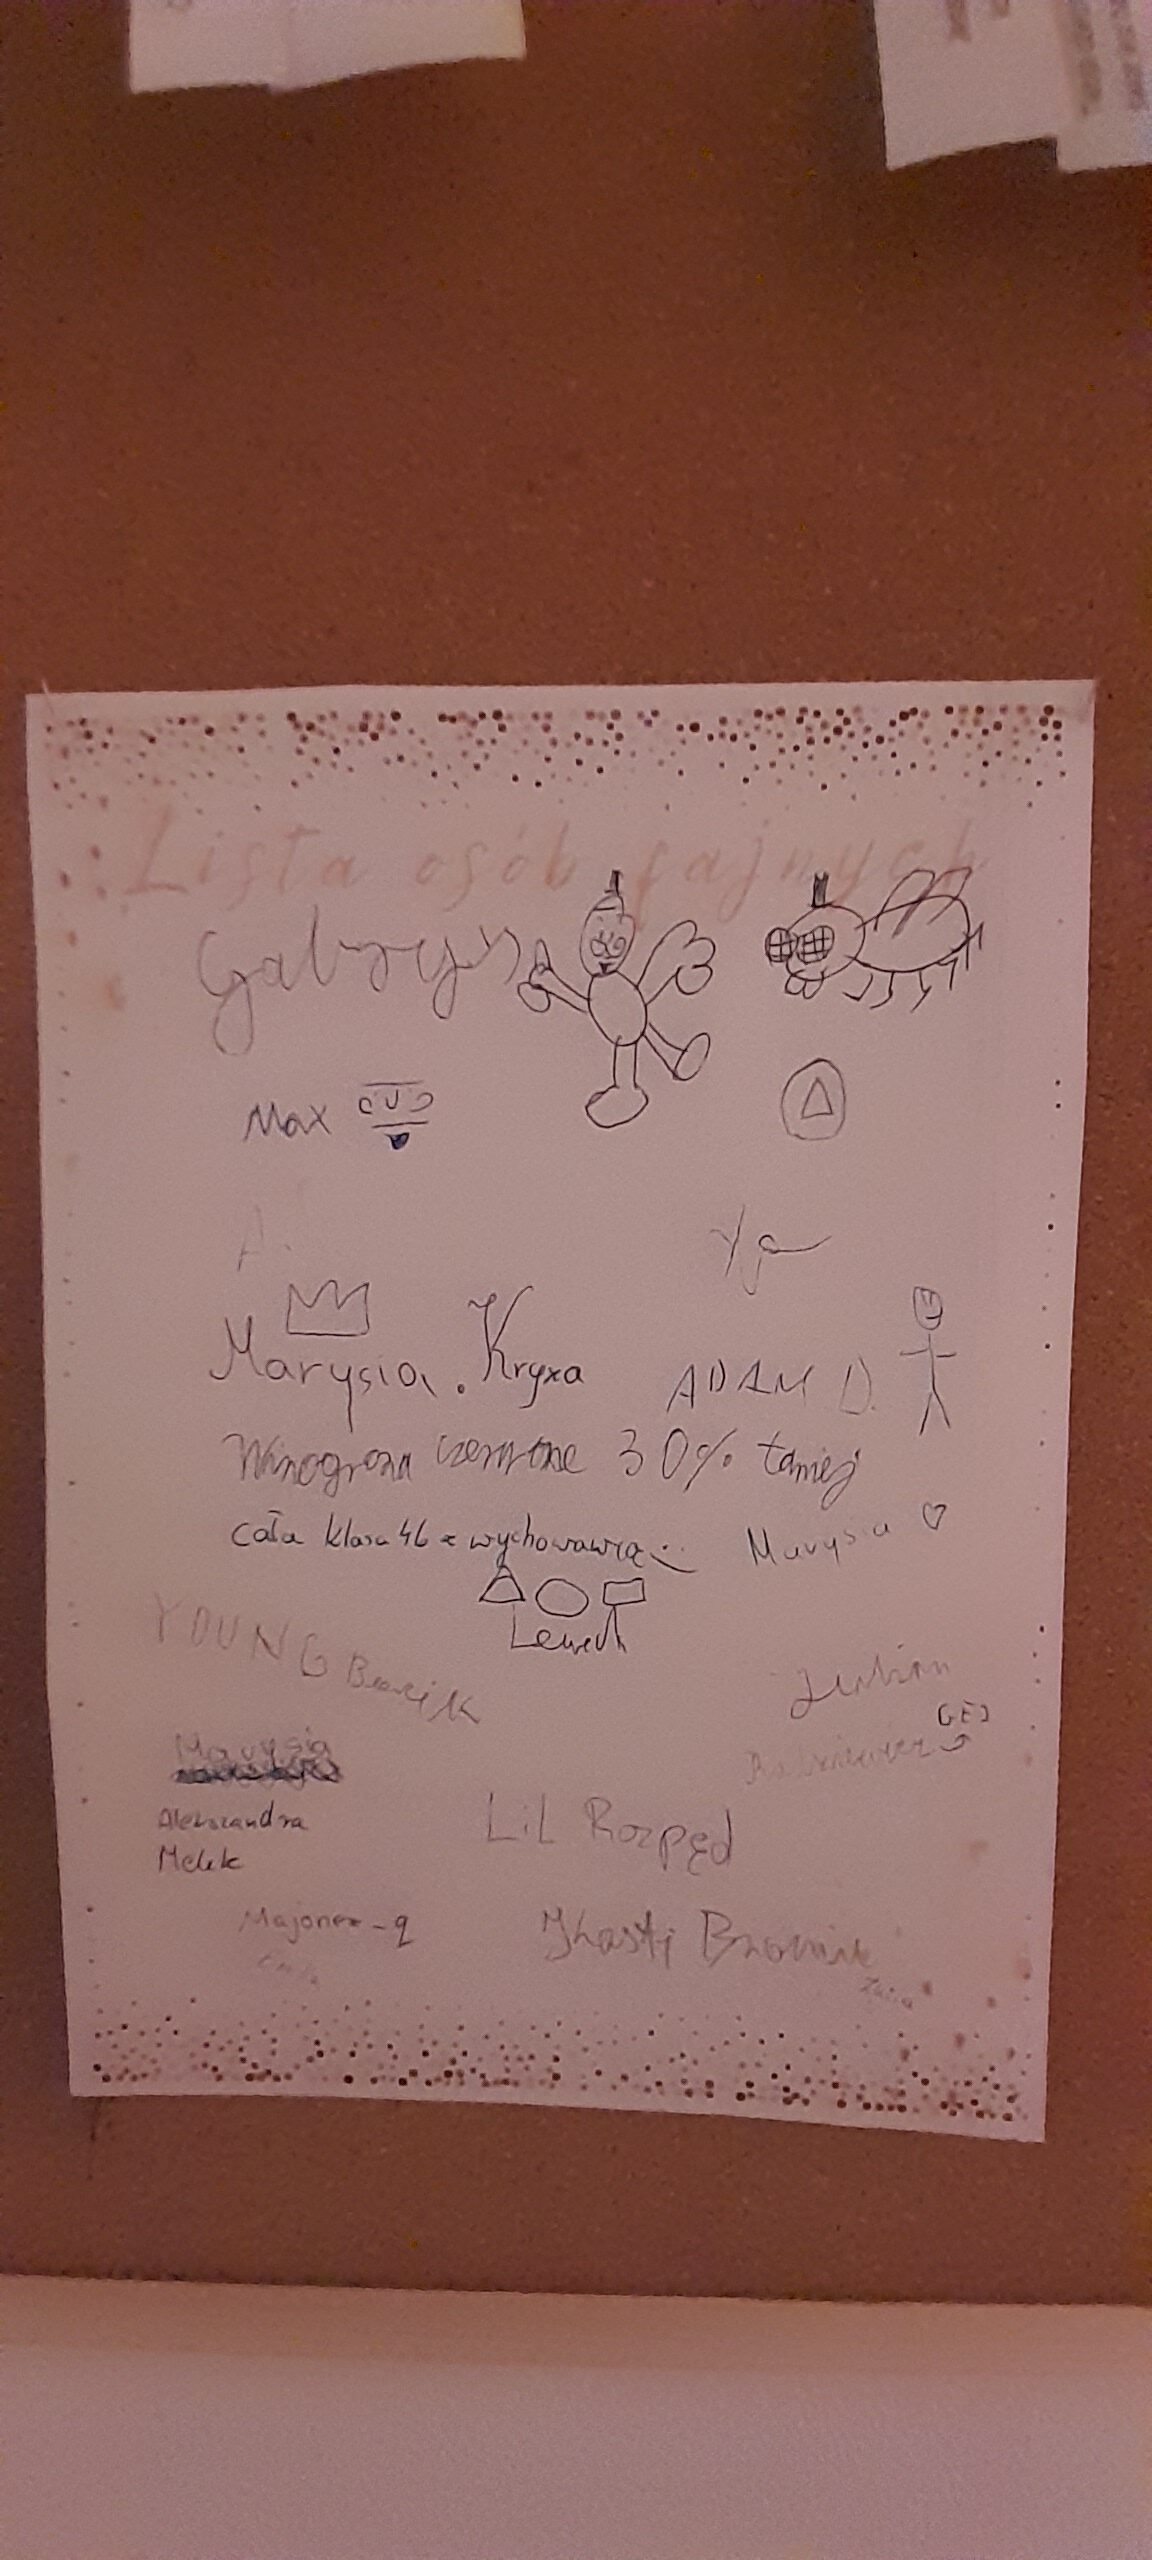 Lista osób fajnych
Gabryś
Max
Ya
Marysia. Kryxa
ADAM D.
Winogrona czerwone 30% taniej
cała klasa 4b z wychowawcą
Marysia
Lewech
YOUNG
[GE]
Marysia
Aleksandra
Melek
LiL Rozpęd
Majonez-q